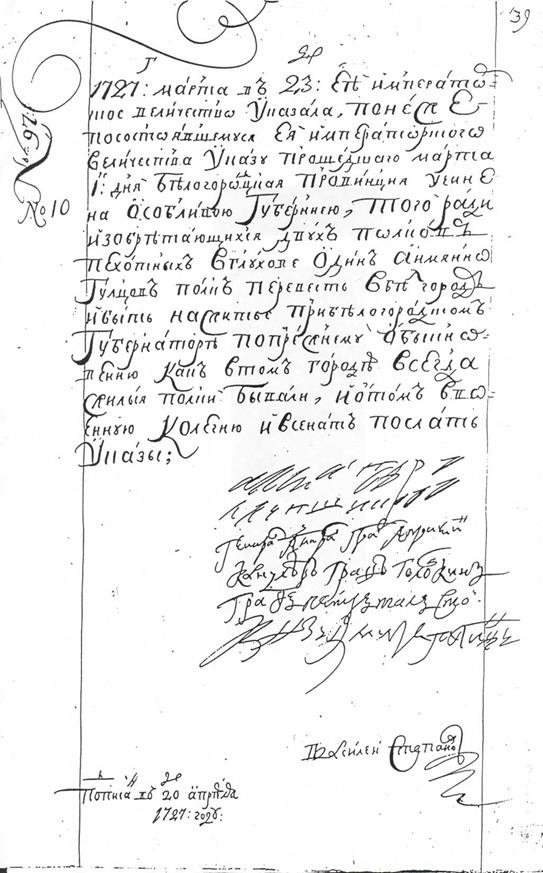 39
№ 97
№ 10
1727: марта въ 23: Еѣ императо
рское величество Указала, понеже
по состоявшемуся Ея императорского
величества Указу прошедшаго марта
1: дня бѣлогородцкая провинция учине
на особливою Губерниею, того ради
из обрѣтающихся двухъ полковъ
пехотныхъ в глухове один а имянно
полкъ перевесть в бѣлгородъ
и быть на смитье при бѣлогородскомъ
Губернаторѣ по прежнему обыкно
вению как в том городѣ всегда
жилыя полки бывали, и о томъ в во
енную Колегию и в сенатъ послать
Указы;
генералъ адмиралъ Графъ Апраксинъ
Канцлеръ Графъ Головкинъ
Графъ Петръ Толстой
Князь Дмитрей Голицынъ
Василей Степановъ
Подписанъ въ 20 апрѣля
1727: году: